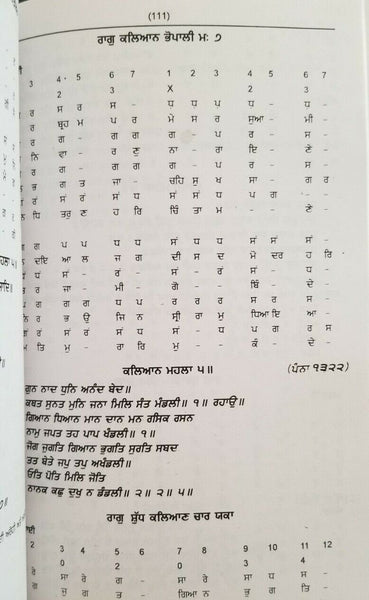 (111)
ਰਾਗੁ ਕਲਿਆਨ ਭੋਪਾਲੀ ਮਃ ੭
3 4 5 6 7 1 2 3 4 5 6 7
2 3 X 2 3
ਰ ਸ ਰ ਸ - ਧ ਧ ਪ ਧ - ਧ -
ਰ ਬ੍ਰਹ ਮ ਪ ਰ ਮੇ ਸ ਰ ਸੁਆ - ਮੀ -
ਰ ਗ - ਗ ਗ ਗ - ਪ ਰ - ਸ -
ਨਿ ਵਾ - ਰ ਣੁ ਨਾ ਰਾ ਇ - ਣੇ -
ਰ ਗ - ਗ ਗ ਗ - ਪ ਰ - ਸ -
ਭ ਗ ਤ ਜਾ - ਚਹਿ ਸੁ ਖ ਸਾ - ਗ ਰ
ਰ ਸਂ ਰਂ ਸਂ ਧ ਸਂ ਸਂ ਧ ਪ ਗ - -
ਨਿ ਧਿ ਤਰੁ ਣ ਹ ਰਿ ਚਿੰ ਤਾ ਮ - ਣੇ -
ਗ ਗ ਪ ਪ ਧ ਧ ਸਂ ਧ ਸਂ ਸਂ ਸਂ -
ਨ ਦਇ ਆ ਲ ਜ ਗ ਦੀ ਸ ਦ ਮੋ ਦਰ ਹ ਰਿ
ਧ ਧਂ ਸਂ - ਰਂ - ਸਂ - ਰਂ ਸਂ - ਧ -
ਰ ਜਾ - ਮੀ - ਗੋ - - ਬਿੰ - ਦੇ -
ਗ ਗ ਗ ਗ ਧ ਪ ਰ ਰ ਰ ਸ ਰ ਸ -
ਨਿ ਰ ਭ ਉ ਜਿ ਨ ਸ੍ਰੀ ਰਾ ਮੁ ਧਿਆ ਇ ਆ -
ਗ ਰਂ ਸਂ ਰਂ ਸਂ ਧ ਸਂ - ਧ ਪ ਗ ਰ ਸ
ਮ ਤਿ ਮੁ - ਰਾ ਰਿ ਮੁ - - ਕੰ - ਦੇ -
ਕਲਿਆਨ ਮਹਲਾ ੫॥ (ਪੰਨਾ ੧੩੨੨)
ਗੁਨ ਨਾਦ ਧੁਨਿ ਅਨੰਦ ਬੇਦ॥
ਕਥਤ ਸੁਨਤ ਮੁਨਿ ਜਨਾ ਮਿਲਿ ਸੰਤ ਮੰਡਲੀ॥ ੧॥ ਰਹਾਉ॥
ਗਿਆਨ ਧਿਆਨ ਮਾਨ ਦਾਨ ਮਨ ਰਸਿਕ ਰਸਨ
ਨਾਮੁ ਜਪਤ ਤਹ ਪਾਪ ਖੰਡਲੀ॥ ੧॥
ਜੋਗ ਜੁਗਤਿ ਗਿਆਨ ਭੁਗਤਿ ਸੁਰਤਿ ਸਬਦ
ਤਤ ਬੇਤੇ ਜਪੁ ਤਪੁ ਅਖੰਡਲੀ॥
ਓਤਿ ਪੋਤਿ ਮਿਲਿ ਜੋਤਿ
ਨਾਨਕ ਕਛੂ ਦੁਖੁ ਨ ਡੰਡਲੀ॥ ੨॥ ੨॥ ੫॥
ਰਾਗੁ ਸ਼ੁੱਧ ਕਲਿਆਣ ਚਾਰ ਯਕਾ
2 3 4 5 6 7 8 9 10 11 12
0 2 0 3 4
ਰੇ ਸਾ ਰੇ ਗ - ਸਾ ਰੇ ਸਾ ਧ ਸ -
ਗ ਜੁ ਗ ਤ - ਗਿਆ ਨ ਭੁ ਗ ਤਿ -